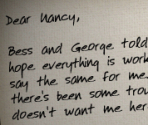 Dear Nancy,
Bess and George told
hope everything is work
say the same for me.
there's been some trou
doesn't want me her